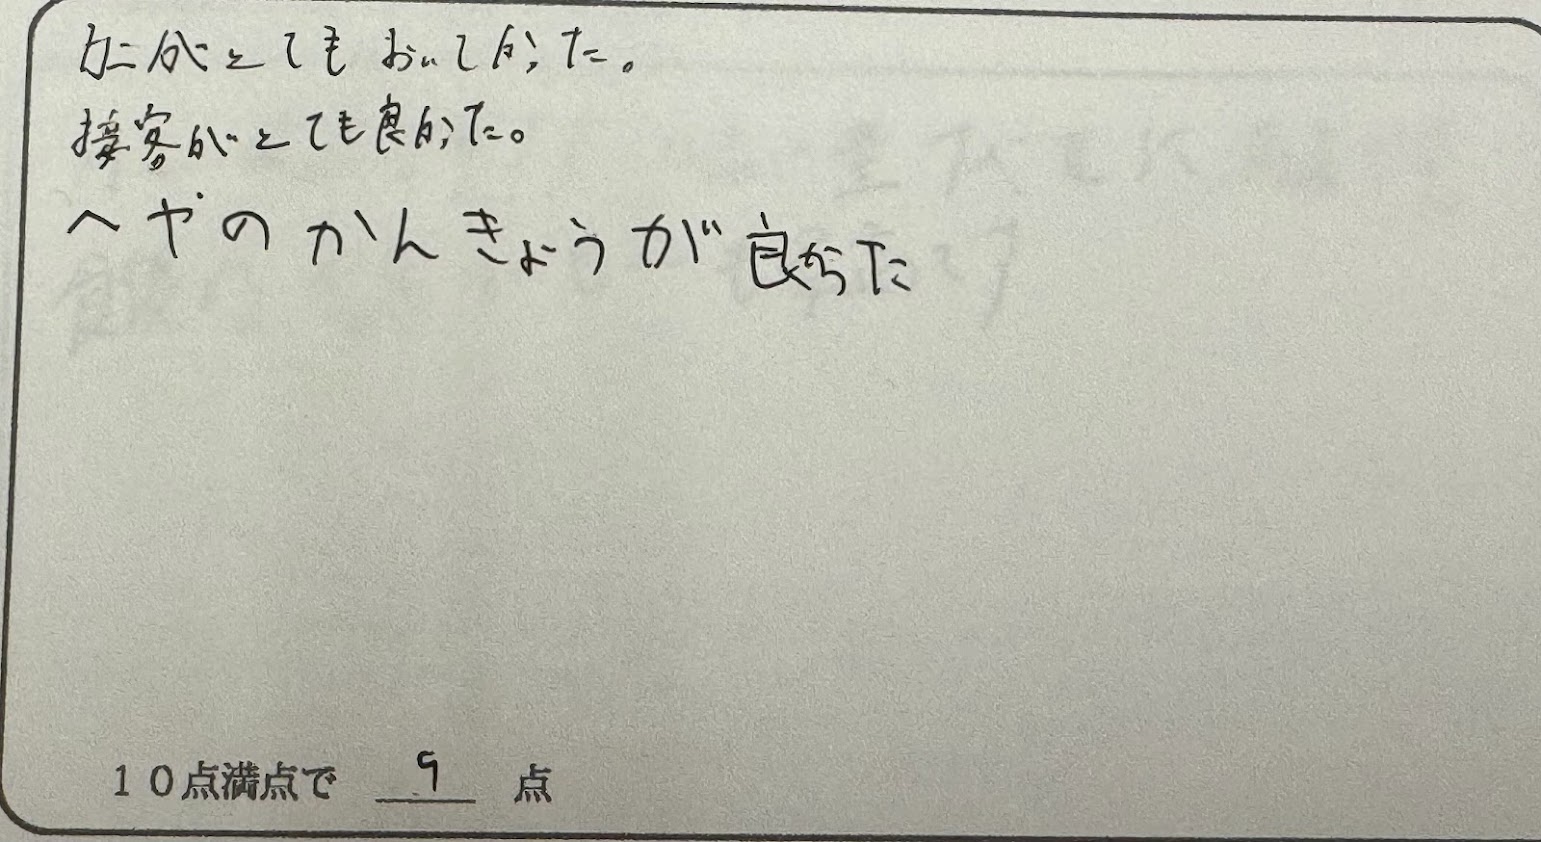 カニがとてもおいしかった。
接客がとても良かった。
へやのかんきょうが良かった
10点満点で 9 点